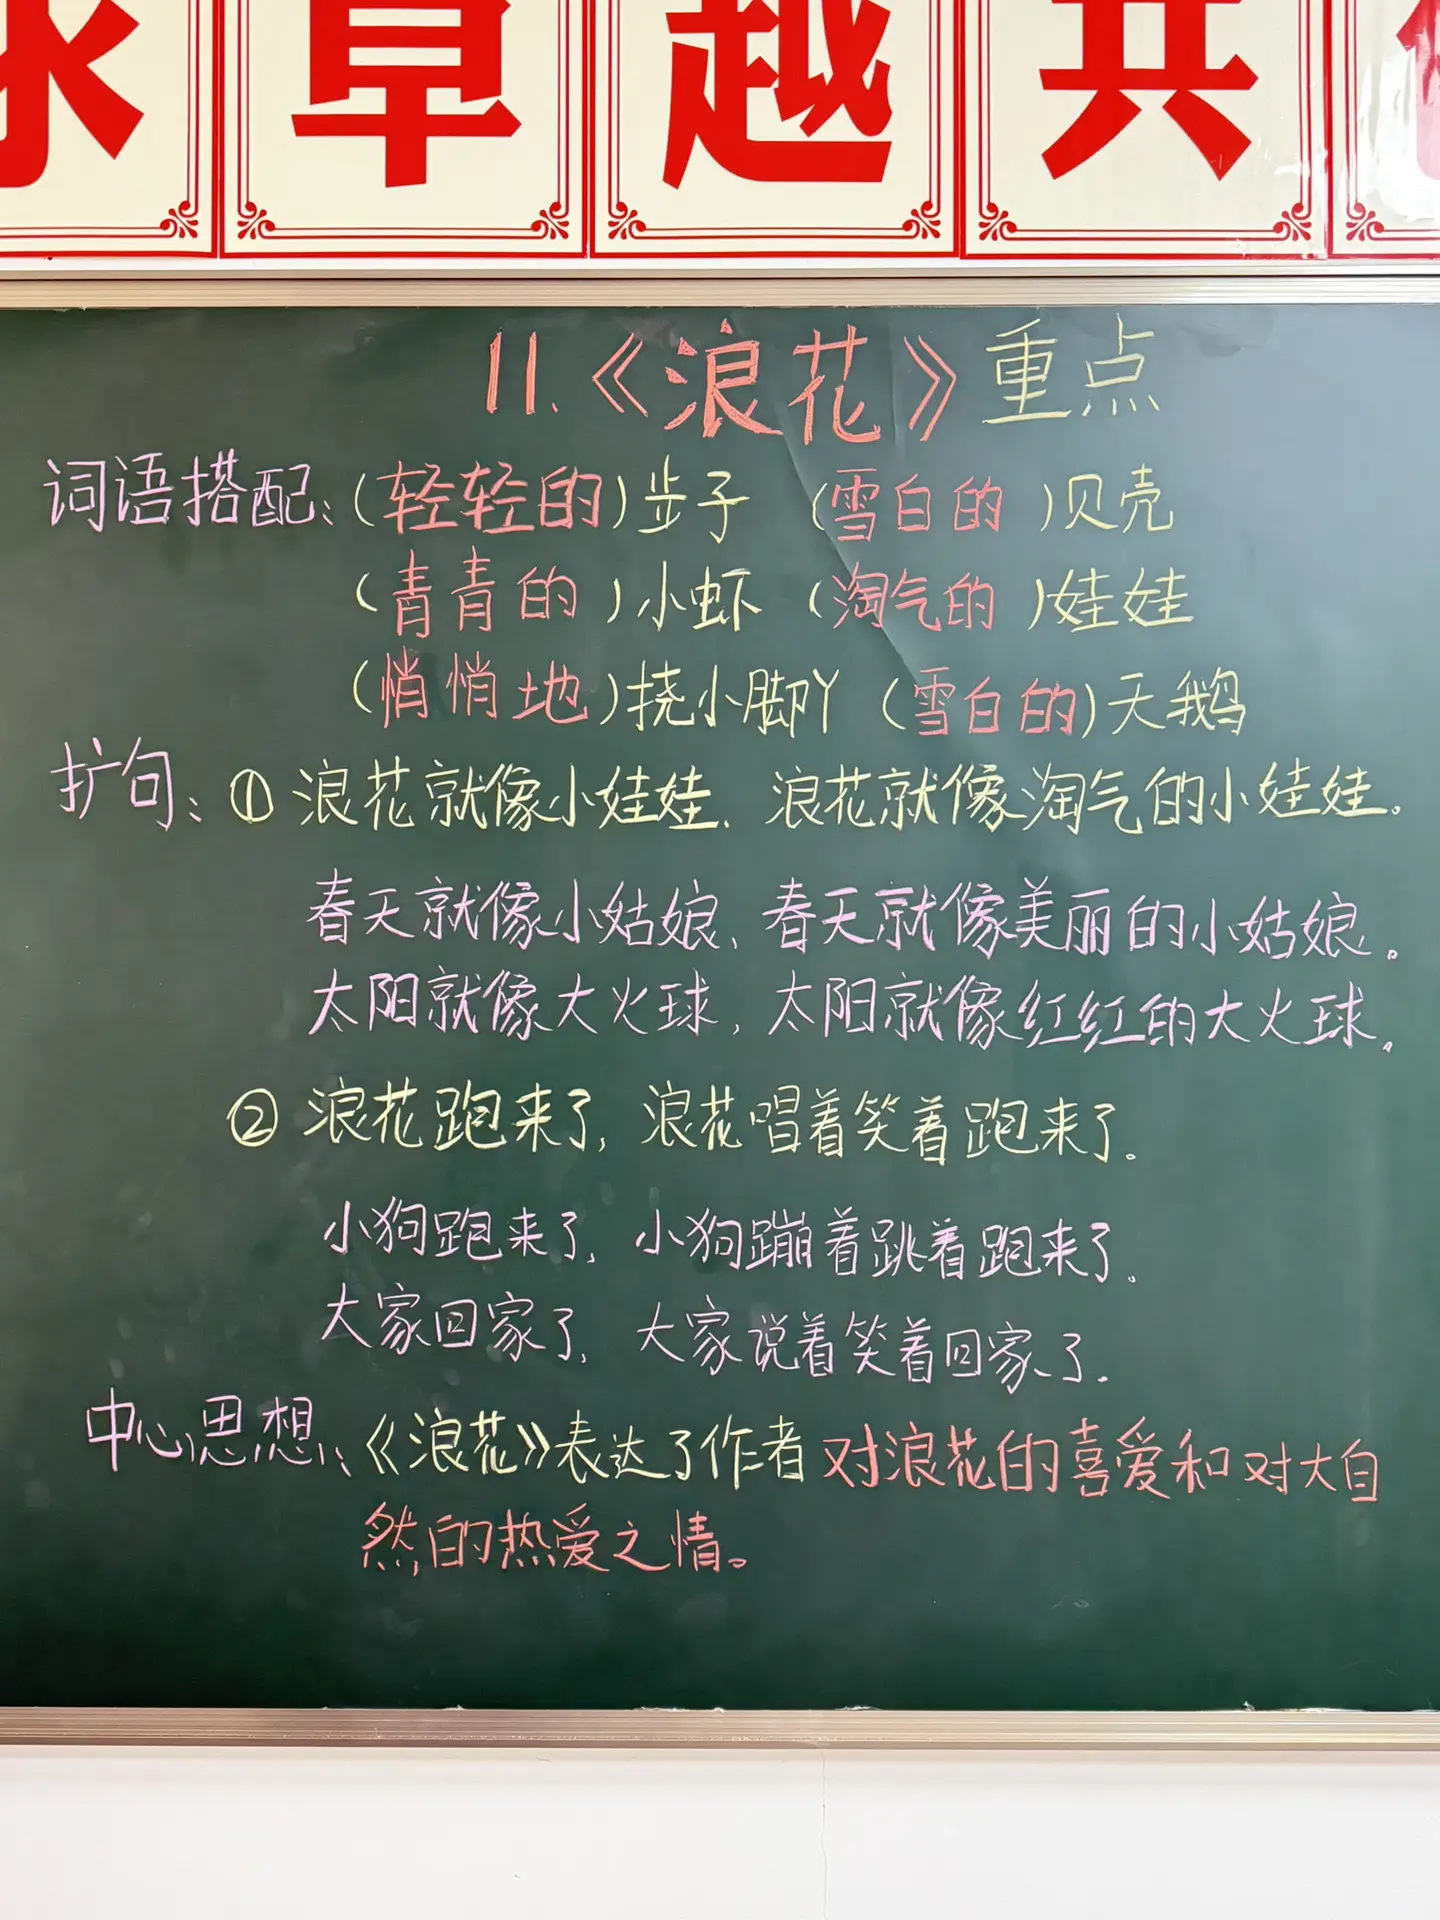 卓越共
11.《浪花》重点
词语搭配:(轻轻的)步子 (雪白的 )贝壳
(青青的 )小虾 (淘气的 )娃娃
(悄悄地)挠小脚丫 (雪白的)天鹅
扩句:① 浪花就像小娃娃. 浪花就像淘气的小娃娃。
春天就像小姑娘、春天就像美丽的小姑娘。
太阳就像大火球, 太阳就像红红的大火球。
② 浪花跑来了, 浪花唱着笑着跑来了。
小狗跑来了, 小狗蹦着跳着跑来了。
大家回家了, 大家说着笑着回家了.
中心思想:《浪花》表达了作者对浪花的喜爱和对大自
然的热爱之情。